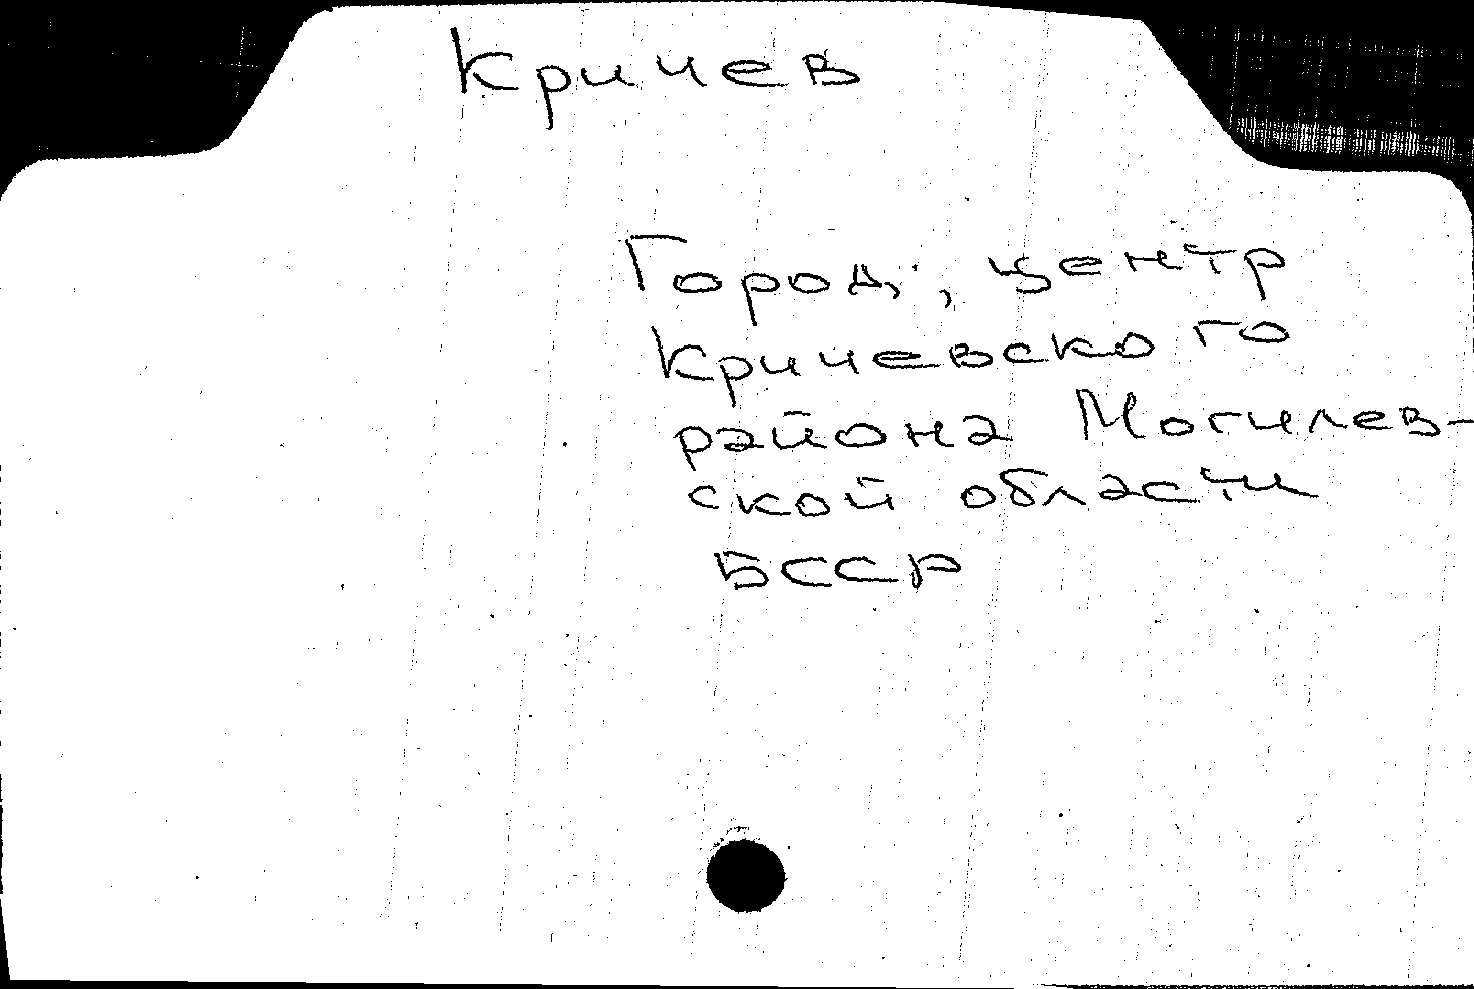 Кричев
Город, центр
Кричевского
района Могилев-
ской области
БССР